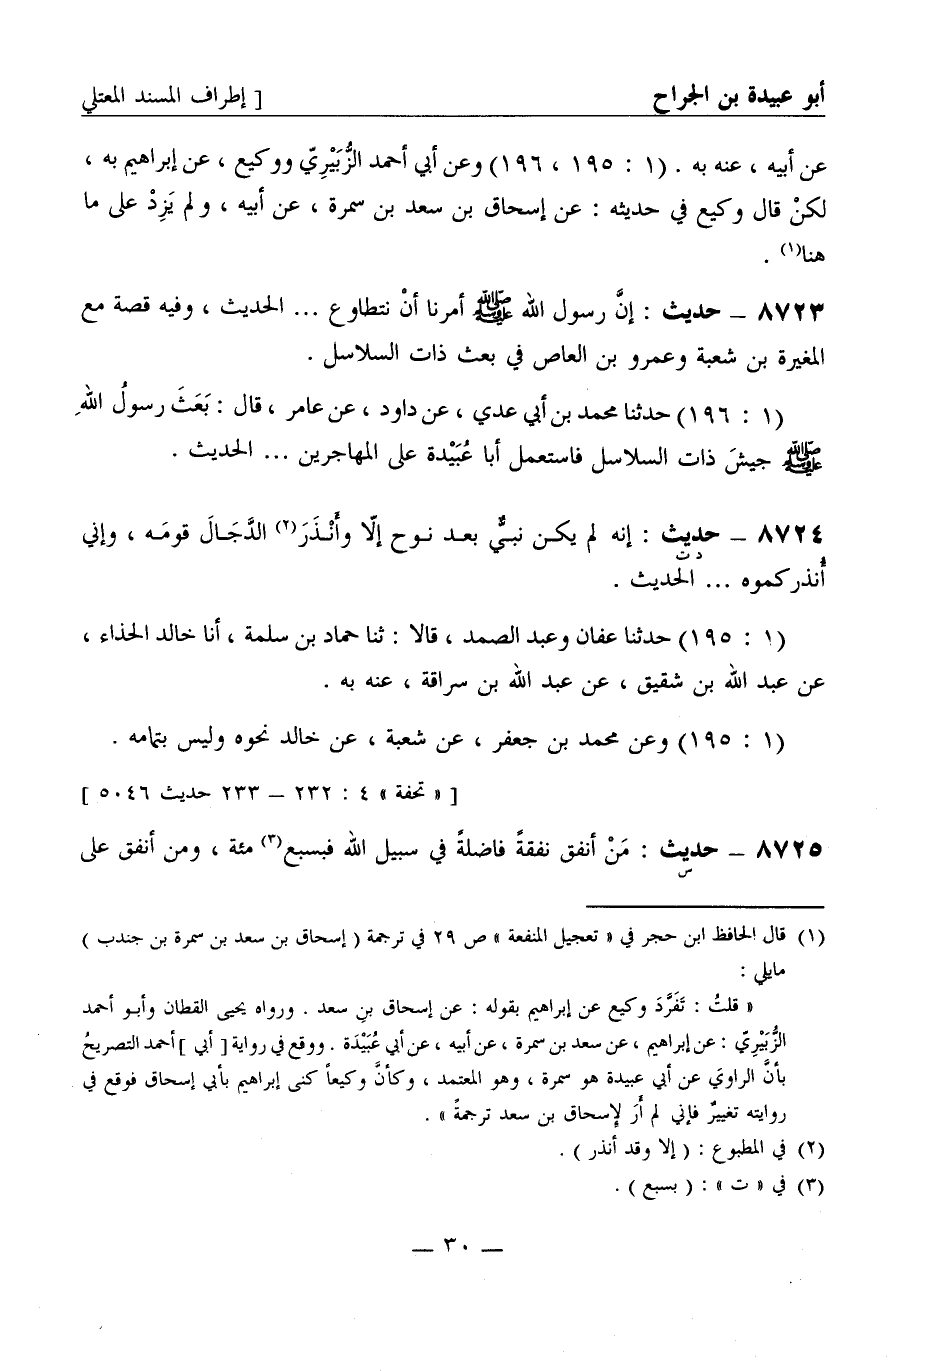 أبو عبيدة بن الجراح [ إطراف المسند المعتلي
عن أبيه ، عنه به . (١ : ١٩٥ ، ١٩٦) وعن أبي أحمد الزُّبَيْرِيّ ووكيع ، عن إبراهيم به ،
لكنْ قال وكيع في حديثه : عن إسحاق بن سعد بن سمرة ، عن أبيه ، ولم يَزِدْ على ما
هنا(١) .
٨٧٢٣ ـ حديث : إنَّ رسول الله ﷺ أمرنا أنْ نتطاوع ... الحديث ، وفيه قصة مع
المغيرة بن شعبة وعمرو بن العاص في بعث ذات السلاسل .
(١ : ١٩٦) حدثنا محمد بن أبي عدي ، عن داود ، عن عامر ، قال : بَعَثَ رسولُ اللهِ
ﷺ جيشَ ذات السلاسل فاستعمل أبا عُبَيْدة على المهاجرين ... الحديث .
٨٧٢٤ ـ حديث : إنه لم يكـن نبيٌّ بعـد نـوح إلّا وأَنْـذَرَ(٢) الدَّجـالَ قومَـه ، وإني
د ت
أُنذركموه ... الحديث .
(١ : ١٩٥) حدثنا عفان وعبد الصمد ، قالا : ثنا حماد بن سلمة ، أنا خالد الحذاء ،
عن عبد الله بن شقيق ، عن عبد الله بن سراقة ، عنه به .
(١ : ١٩٥) وعن محمد بن جعفر ، عن شعبة ، عن خالد نحوه وليس بتمامه .
[ « تحفة » ٤ : ٢٣٢ ـ ٢٣٣ حديث ٥٠٤٦ ]
٨٧٢٥ ـ حديث : مَنْ أنفق نفقةً فاضلةً في سبيل الله فبسبع(٣) مئة ، ومن أنفق على
س
(١) قال الحافظ ابن حجر في « تعجيل المنفعة » ص ٢٩ في ترجمة ( إسحاق بن سعد بن سمرة بن جندب )
مايلي :
« قلتُ : تَفَرَّدَ وكيع عن إبراهيم بقوله : عن إسحاق بنِ سعد . ورواه يحيى القطان وأبـو أحمد
الزُّبَيْرِيّ : عن إبراهيم ، عن سعد بن سمرة ، عن أبيه ، عن أبي عُبَيْدَة . ووقع في رواية [ أبي ] أحمد التصريحُ
بأنَّ الراويَ عن أبي عبيدة هو سمرة ، وهو المعتمد ، وكأنَّ وكيعاً كنى إبراهيم بأبي إسحاق فوقع في
روايته تغييرٌ فإني لم أَرَ لإسحاق بن سعد ترجمةً » .
(٢) في المطبوع : ( إلا وقد أنذر ) .
(٣) في « ت » : ( بسبع ) .
ـ ٣٠ ـ